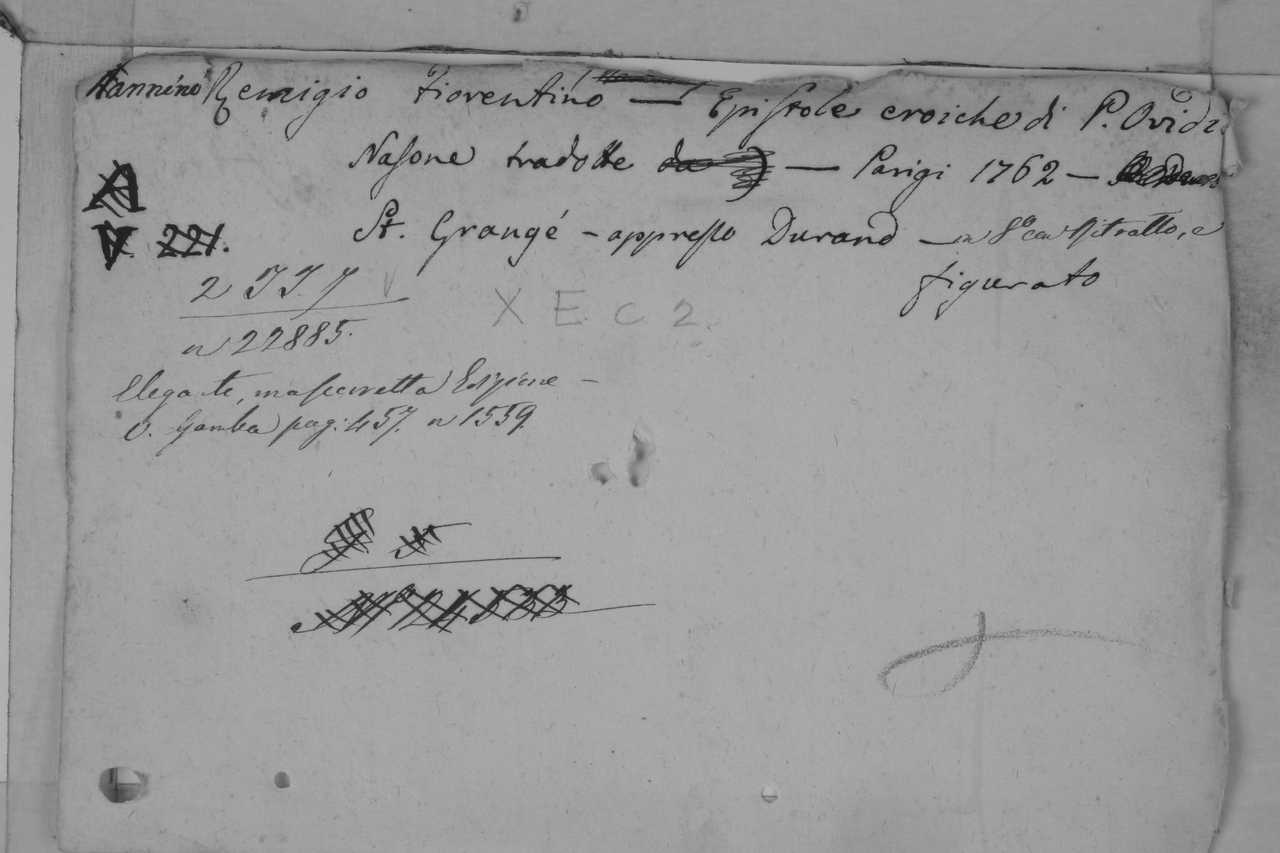 Nannino Remigio Fiorentino — Epistole eroiche di P. Ovidi
Nasone tradotte da — Parigi 1762 —
St. Grangé - appresso Durand — in 8º con Ritratto, e
figurato
V 221.
2
n 22885.
X E C 2.
Elegante, Edizione —
V. Gamba pag: 457. n 1559.
Nº 24533